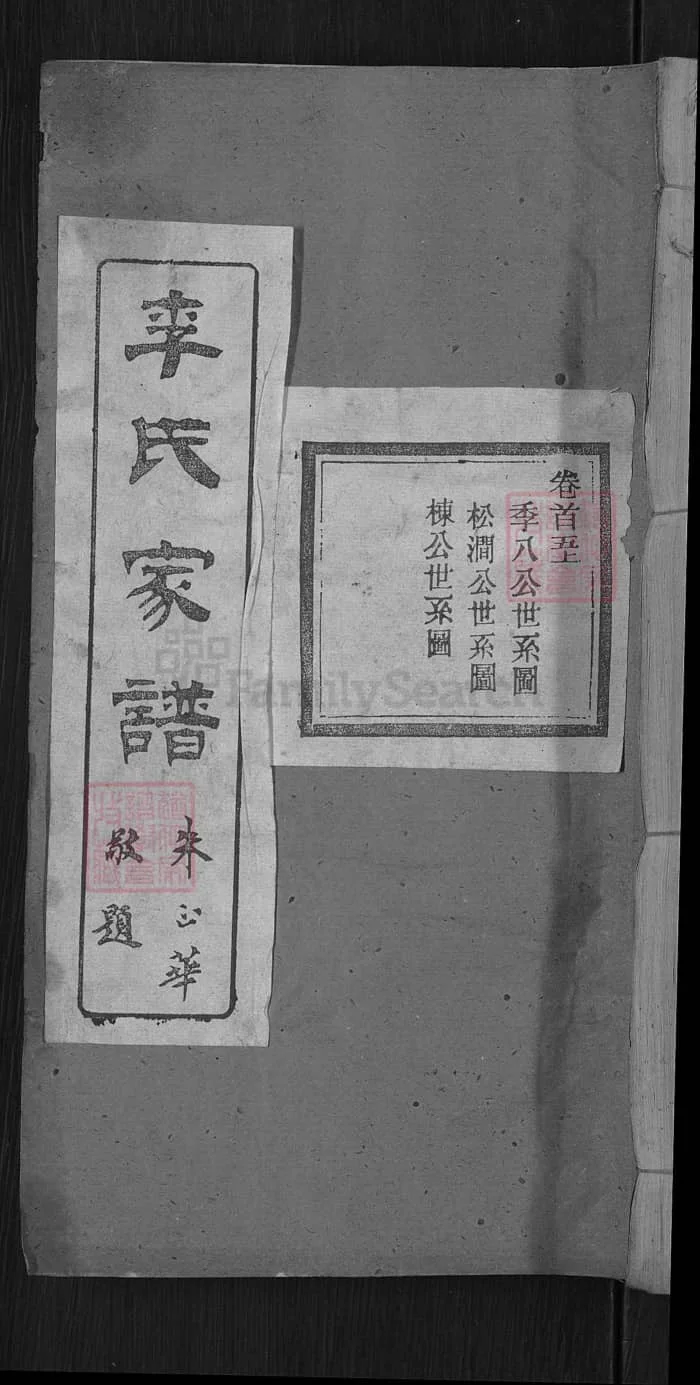 卷首五上
季八公世系圖
松澗公世系圖
棟公世系圖
李氏家譜
朱正華
敬題
FamilySearch